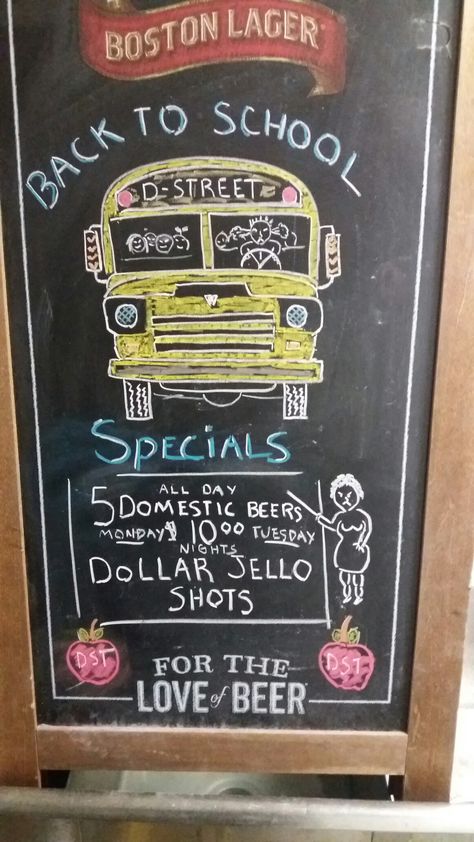 BOSTON LAGER
BACK TO SCHOOL
D-STREET
SPECIALS
ALL DAY
5 DOMESTIC BEERS
MONDAY $ 10 00 TUESDAY
NIGHTS
DOLLAR JELLO
SHOTS
DST DST
FOR THE
LOVE of BEER